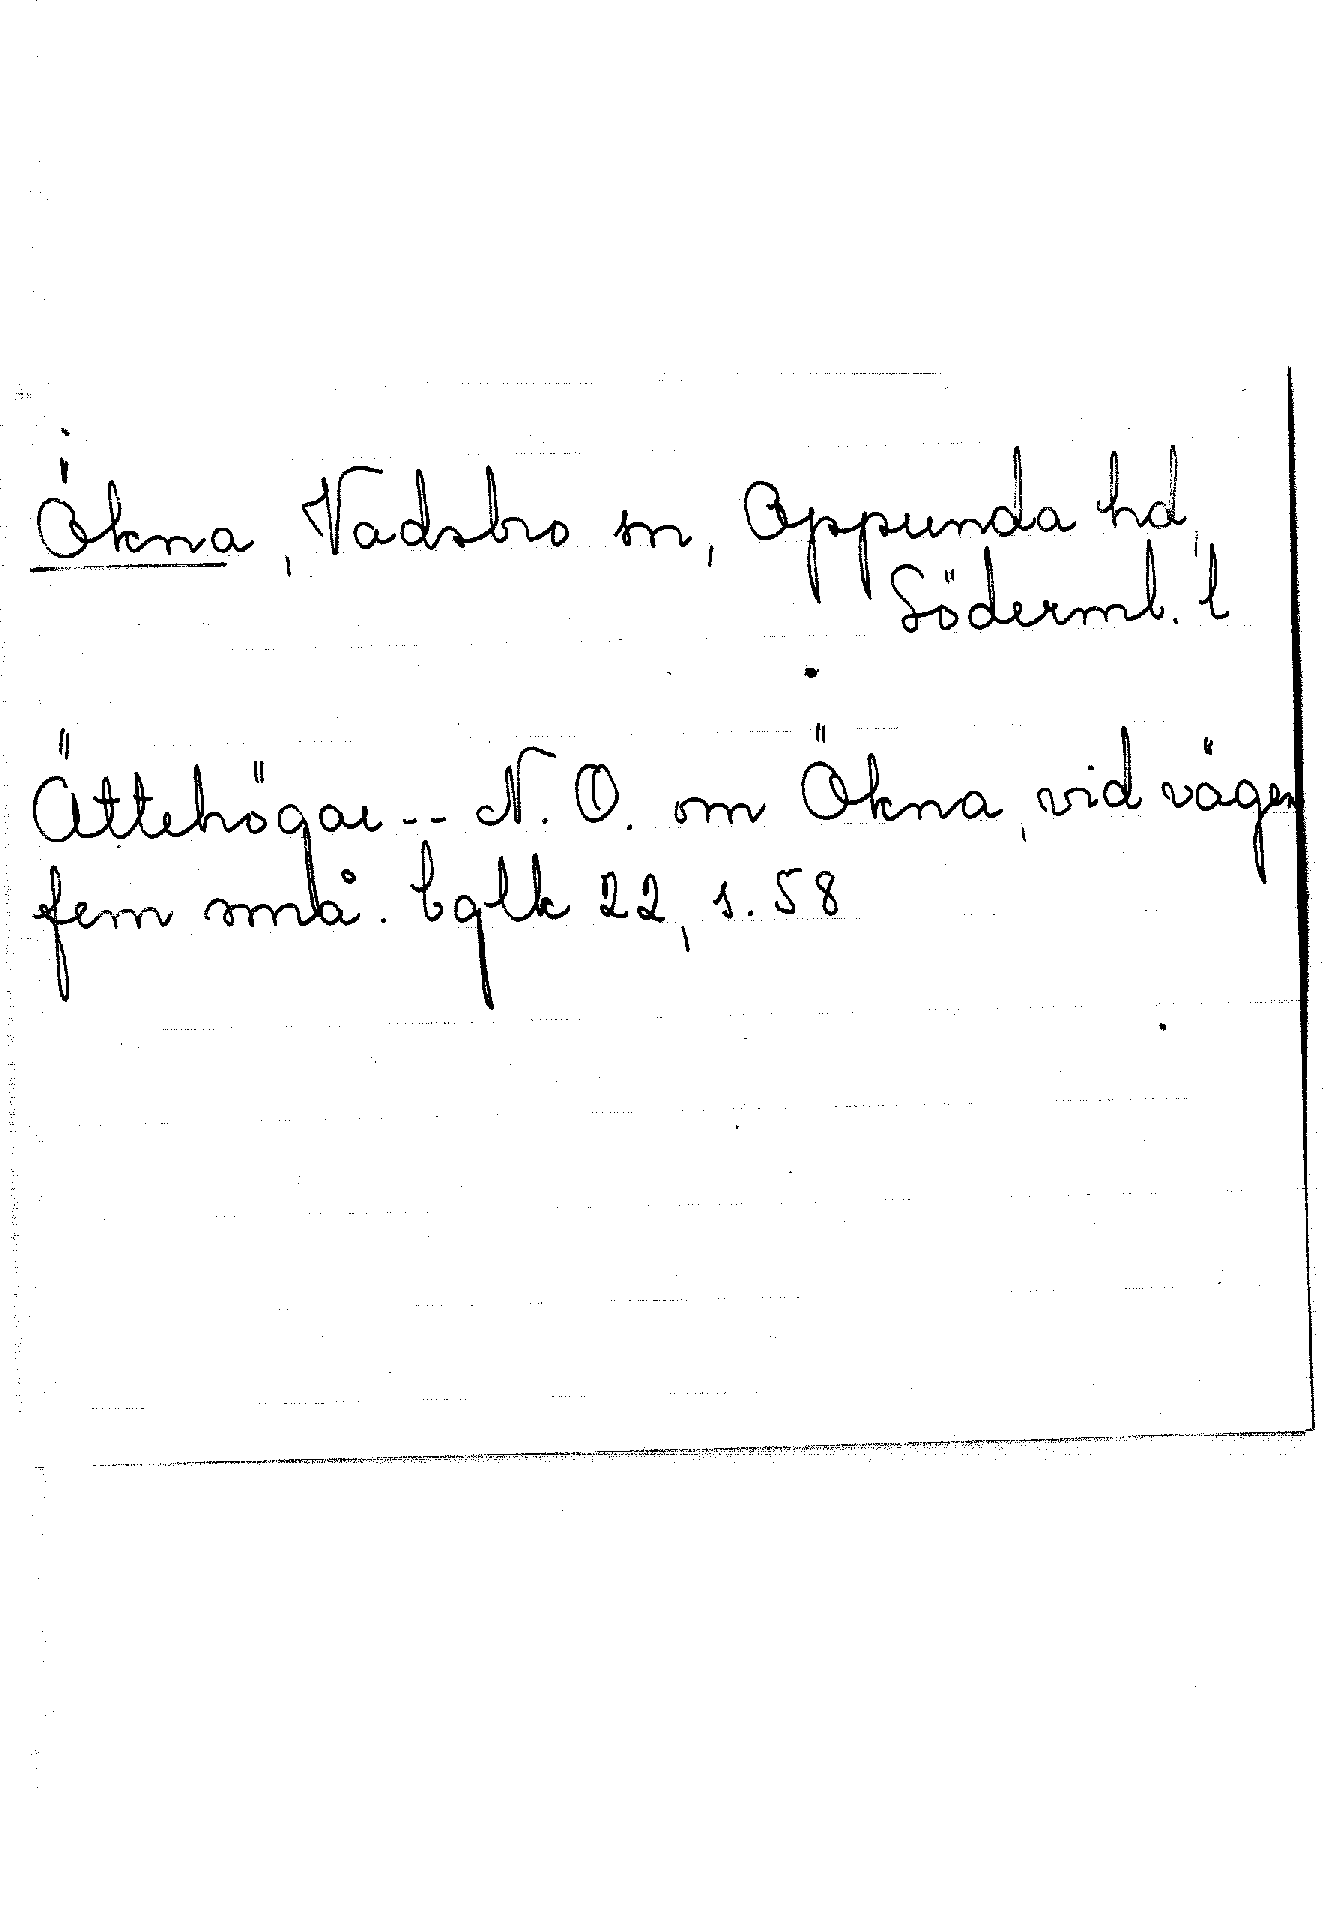 Ökna, Vadsbro sn, Oppunda hd,
Söderml. l
Ättehögar -- N. O. om Ökna, vid vägen
fem små. bglk 22, s. 58